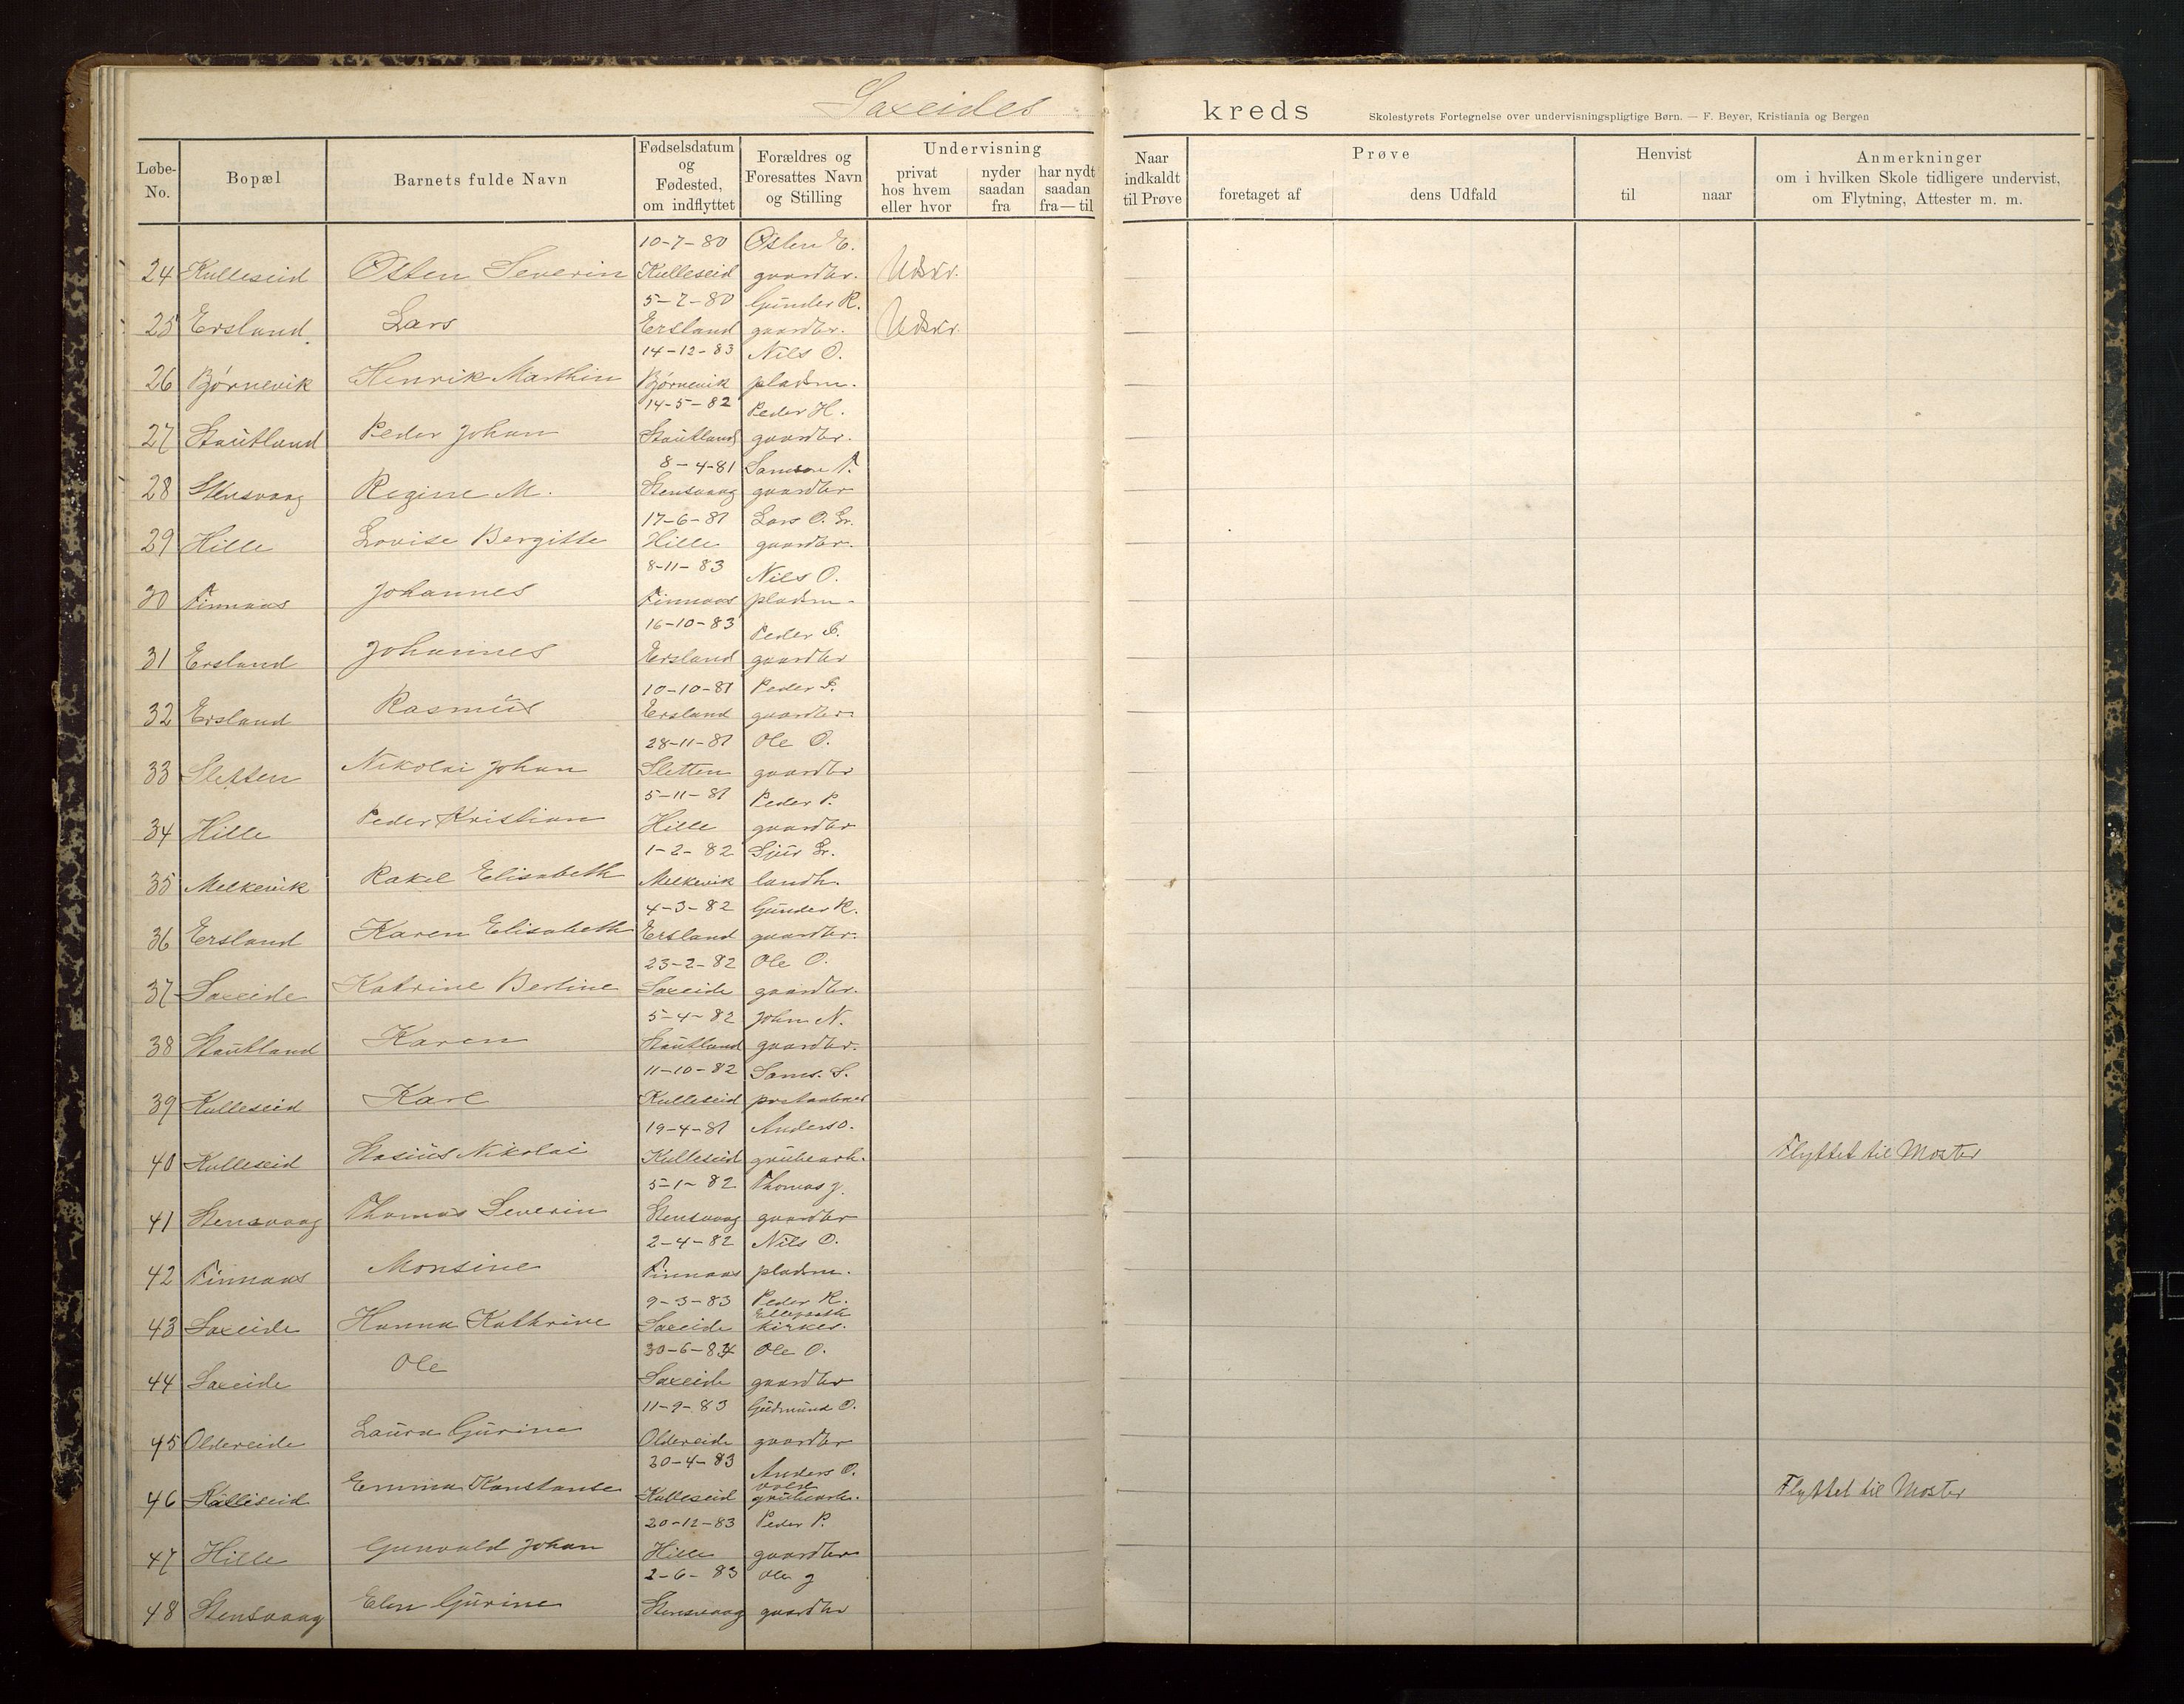 Saxeides kreds Skolestyrets Fortegnelse over undervisningspligtige Børn. — F. Beyer, Kristiania og Bergen
Løbe-No. Bopæl Barnets fulde Navn Fødselsdatum og Fødested, om indflyttet Forældres og Foresattes Navn og Stilling Undervisning privat hos hvem eller hvor nyder saadan fra har nydt saadan fra — til Naar indkaldt til Prøve Prøve foretaget af dens Udfald Henvist til naar Anmerkninger om i hvilken Skole tidligere undervist, om Flytning, Attester m. m.
10-7-80 Østen E.
24 Kulleseid Østen Severin Kulleseid gaardbr. Udskr.
5-2-80 Gunder R.
25 Ersland Lars Ersland gaardbr. Udskr.
14-12-83 Nils O.
26 Bjørnevik Henrik Marthin Bjørnevik pladsm.
14-5-82 Peder H.
27 Stautland Peder Johan Stautland gaardbr.
8-4-81 Samson T.
28 Stensvaag Regine M. Stensvaag gaardbr
17-6-81 Lars O. Gr.
29 Hille Lovise Bergitte Hille gaardbr.
8-11-83 Nils O.
30 Finnaas Johannes Finnaas pladsm.
16-10-83 Peder S.
31 Ersland Johannes Ersland gaardbr
10-10-81 Peder S.
32 Ersland Rasmus Ersland gaardbr
28-11-81 Ole O.
33 Sletten Nikolai Johan Sletten gaardbr
5-11-81 Peder P.
34 Hille Peder Kristian Hille gaardbr
1-2-82 Sjur Gr.
35 Melkevik Rakel Elisabeth Melkevik landh.
4-3-82 Gunder R.
36 Ersland Karen Elisabeth Ersland gaardbr.
23-2-82 Ole O.
37 Saxeide Katrine Bertine Saxeide gaardbr.
5-4-82 John N.
38 Stautland Karen Stautland gaardbr.
11-10-82 Sams. S.
39 Kulleseid Karl Kulleseid postaabner
19-4-81 Anders O.
40 Kulleseid Stasius Nikolai Kulleseid grubearb. Flyttet til Moster
5-1-82 Thomas J.
41 Stensvaag Thomas Severin Stensvaag gaardbr
2-4-82 Nils O.
42 Finnaas Monsine Finnaas pladsm.
9-3-83 Peder R.
43 Saxeide Hanna Kathrine Saxeide kirkes.
30-6-84 Ole O.
44 Saxeide Ole Saxeide gaardbr
11-9-83 Gudmund O.
45 Oldereide Laura Gurine Oldereide gaardbr
20-4-83 Anders O.
46 Kulleseid Emma Konstanse Kulleseid grubearb. Flyttet til Moster
20-12-83 Peder P.
47 Hille Gunvald Johan Hille gaardbr
2-6-83 Ole J
48 Stensvaag Elen Gurine Stensvaag gaardbr